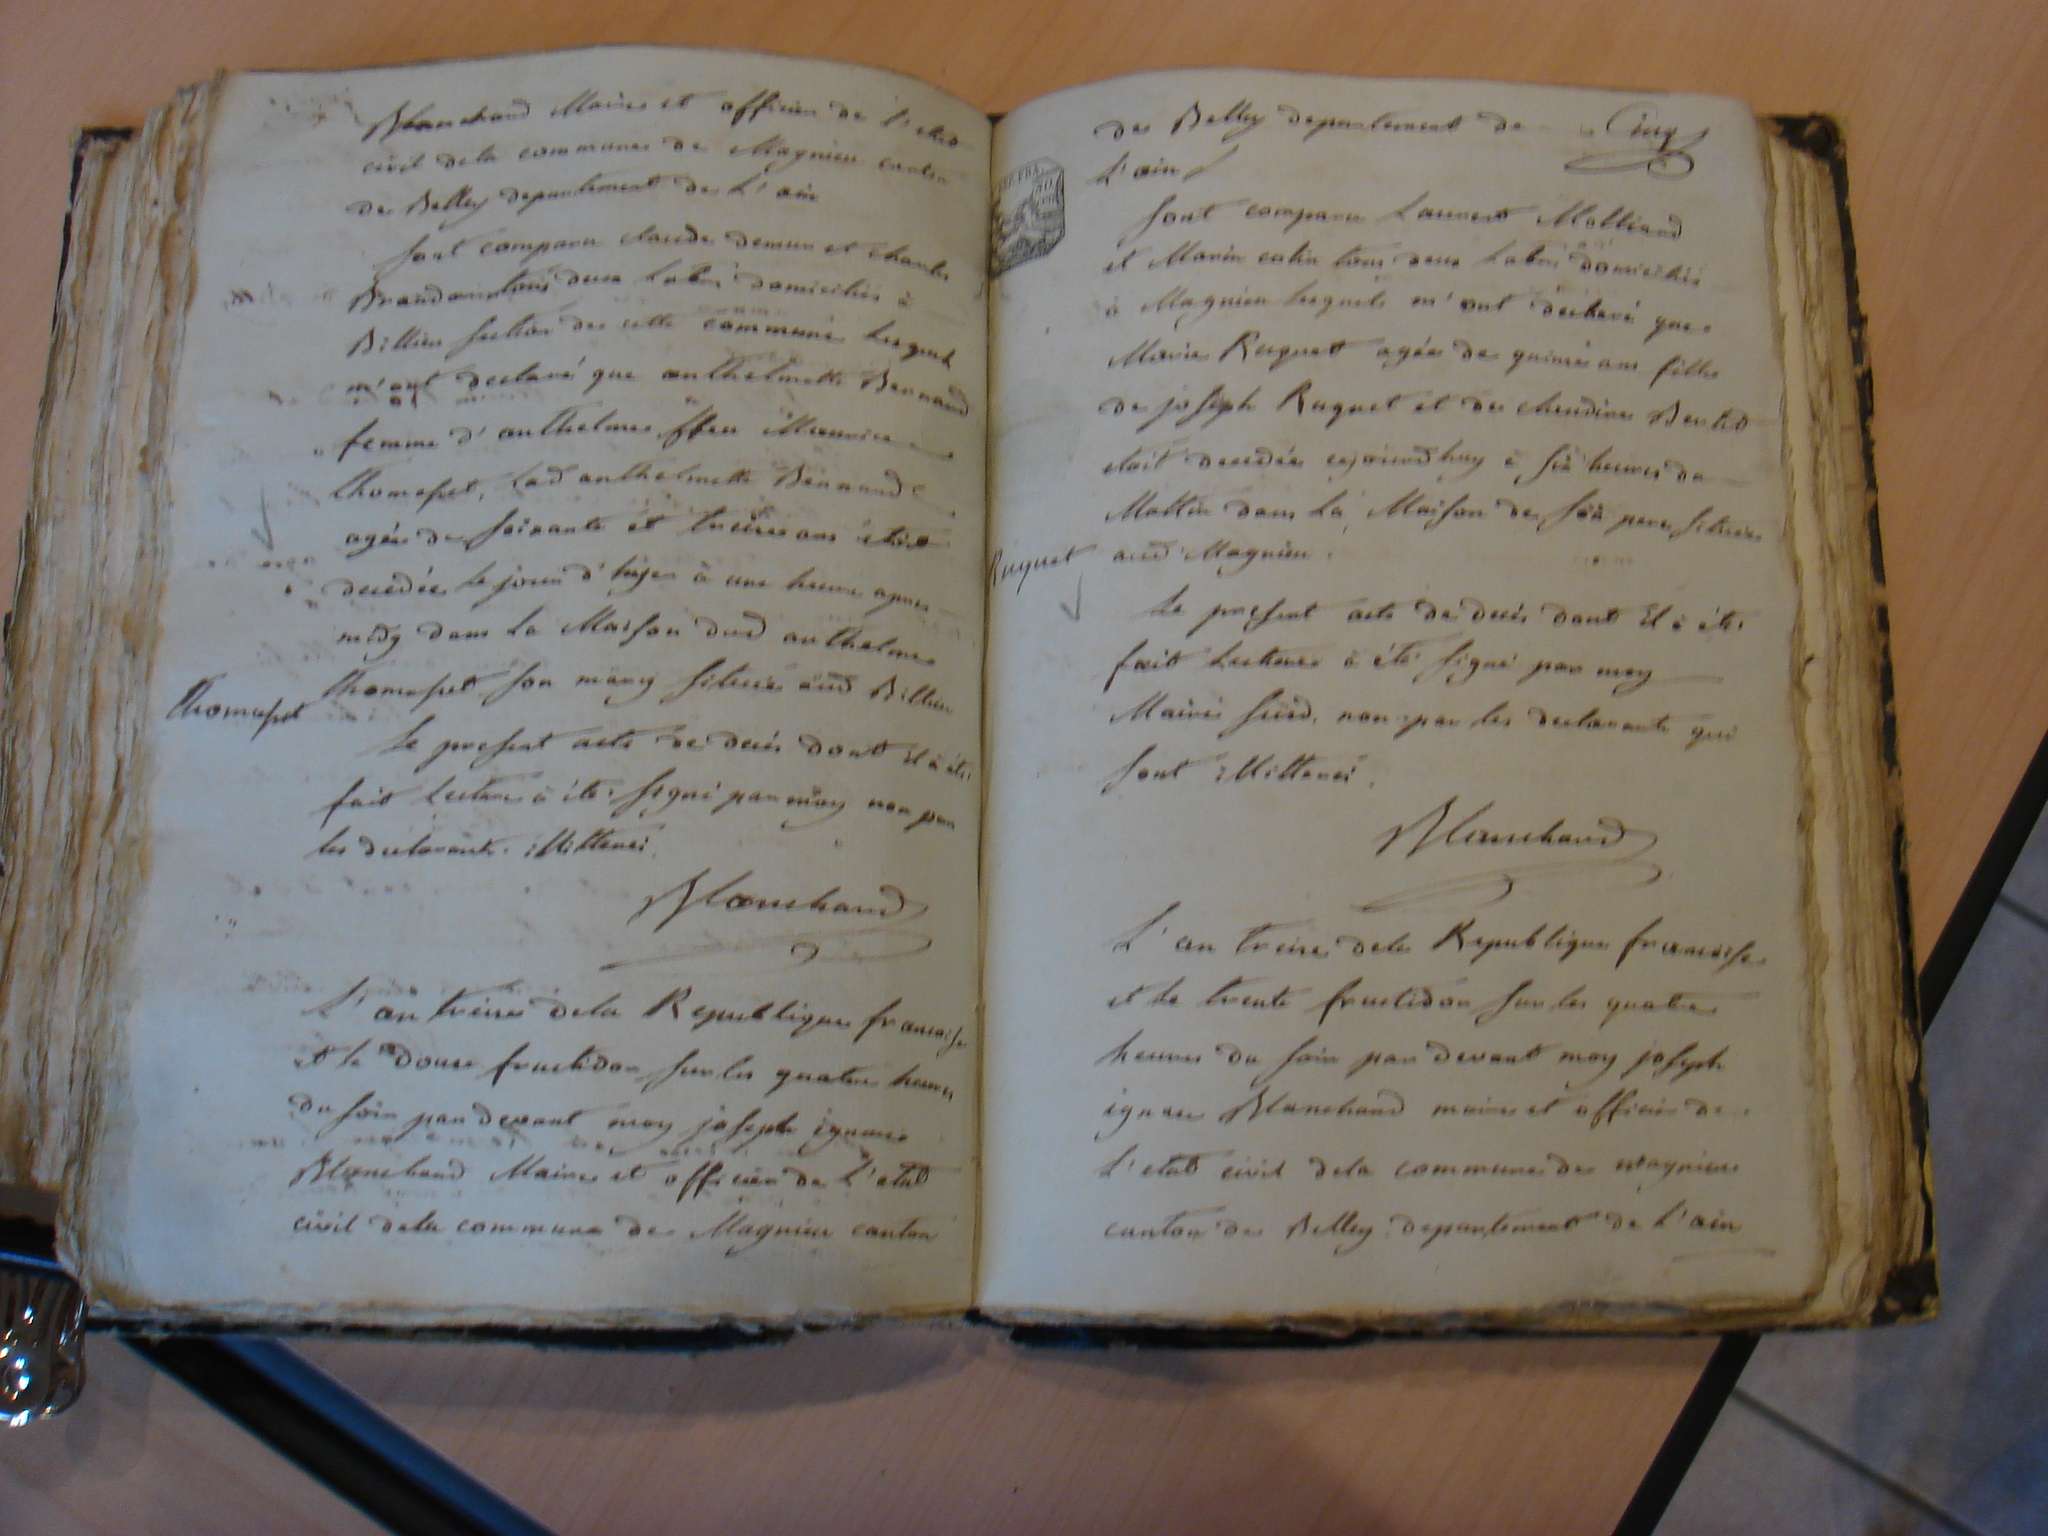 Blanchard Maire et officier de l'etat
civil dela commune de Magnieu canton
de Belley departement de L'ain
sont comparu claude demur et charles
tous deux Labrs domiciliés à
Billieu section de cette commune lesquels
m'ont declaré que anthelmette Bernard
femme d'anthelme ffeu Maurice
thomasset, lad anthelmette Bernard
agée de soixante et treize ans étoit
decedée le jour d'hyer à une heure apres
midy dans la Maison dud anthelme
thomasset son mary située aud Billieu
Thomasset
Le present acte de deces dont il à été
fait lecture à été signé par moy non par
les declarants illitterés.
Blanchard
L'an treize dela Republique francaise
et le douze fructidor sur les quatre heures
du soir par devant moy joseph ignace
Blanchard Maire et officier de L'etat
civil dela commune de Magnieu canton
de Belley departement de Cinq
L'ain
sont comparu Laurent Molliard
et Marin catin tous deux Labrs domiciliés
à Magnieu lesquels m'ont declaré que
Marie Ruquet agée de quinze ans fille
de joseph Ruquet et de claudine Bertet
etoit decedée cejourd'huy à six heures du
Mattin dans la Maison de son pere située
aud Magnieu.
Ruquet
Le present acte de decés dont il à été
fait lecture à été signé par moy
Maire susd. non par les declarants qui
sont illitterés.
Blanchard
L'an treize dela Republique francaise
et le trente fructidor sur les quatre
heures du soir par devant moy joseph
ignace Blanchard maire et officier de
L'etat civil dela commune de magnieu
canton de Belley departement de L'ain